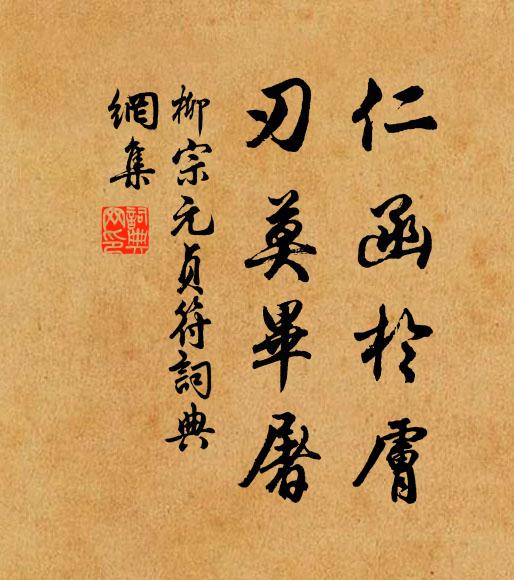 仁函於膚
刃莫畢屠
柳宗元貞符詞典
網集
詞典
网印